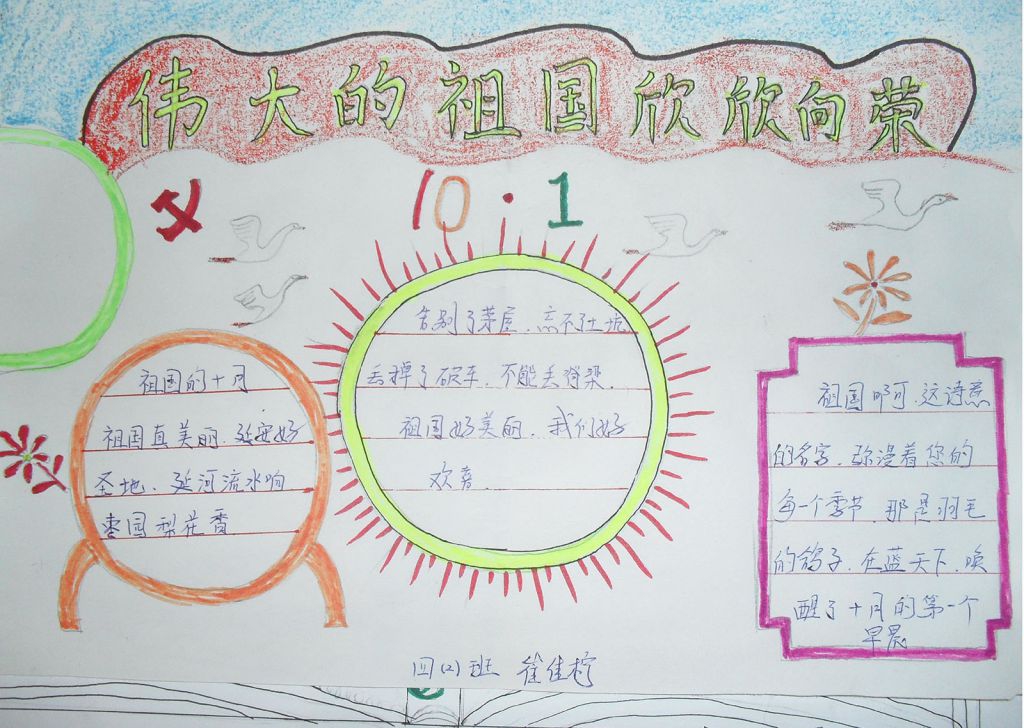 伟大的祖国欣欣向荣
10·1
祖国的十月
祖国真美丽.延安好
圣地.延河流水响
枣园梨花香
告别了茅屋.忘不了土坑
丢掉了破车.不能丢脊梁
祖国好美丽.我们好
欢喜.
祖国啊可.这诗意
的名字.弥漫着您的
每一个季节.那是羽毛
的鸽子.在蓝天下.唤
醒了十月的第一个
早晨
四(2)班 崔佳柠